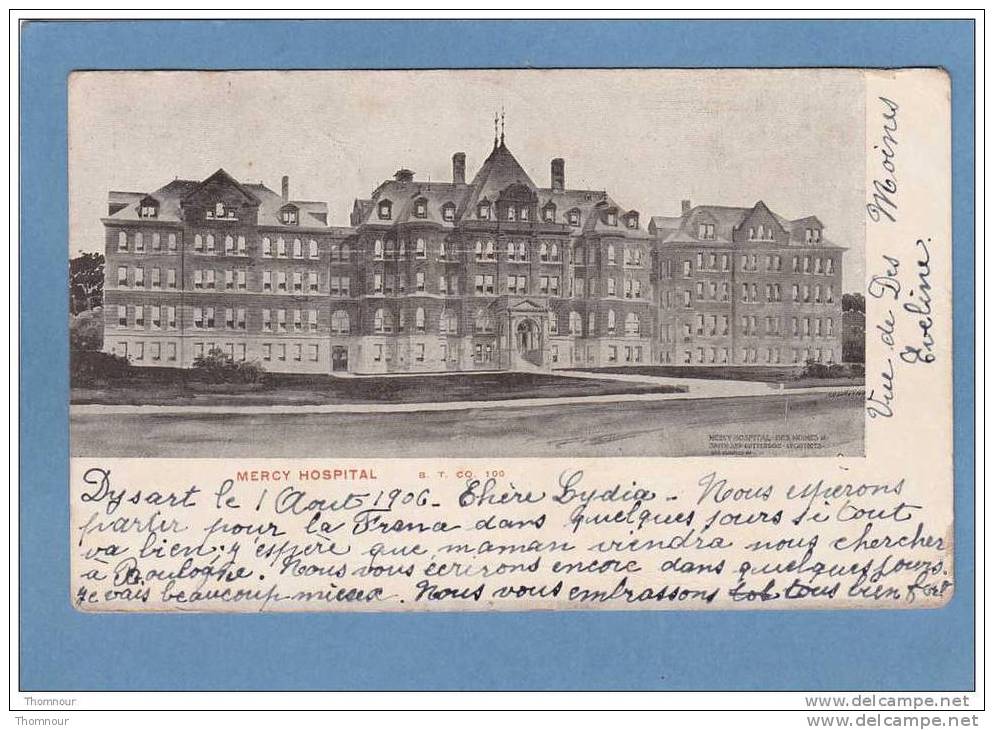 MERCY HOSPITAL DES MOINES IA
SMITH AND GUTTERSON - ARCHITECTS -
MERCY HOSPITAL
B. T. CO. 100
Dysart le 1 Aout 1906 - Chère Lydia - Nous espérons
partir pour la France dans quelques jours si tout
va bien; j'espère que maman viendra nous chercher
à Boulogne. Nous vous écrirons encore dans quelques jours.
Je vais beaucoup mieux. Nous vous embrassons tous bien fort
Vue de Des Moines
Eveline.
Thomnour
www.delcampe.net
Thomnour
www.delcampe.net